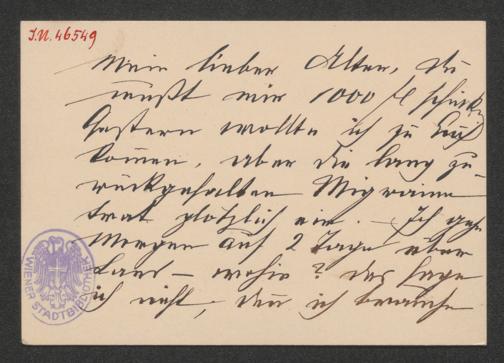 J.N. 46549
Mein lieber Alter, du
mußt mir 1000 K schicken
Gestern wollte ich zu Euch
kommen, aber die lang zu-
rückgehalten Migraine
trat plötzlich ein. – Ich gehe
Morgen auf 2 Tage über
Land – wohin? das sage
ich nicht, denn ich brauche
WIENER STADTBIBLIOTHEK